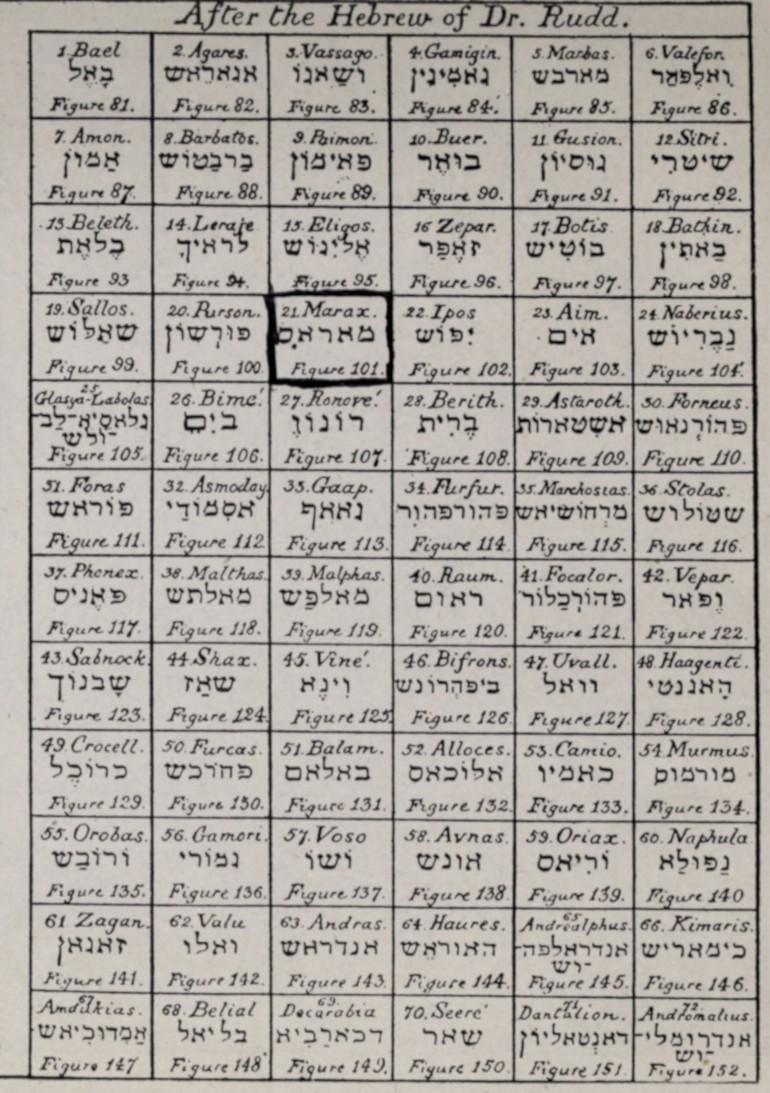 After the Hebrew of Dr. Rudd.
1. Bael
בָאֵל
Figure 81.
2. Agares.
אגאראש
Figure 82.
3. Vassago.
ושאגו
Figure 83.
4. Gamigin.
גאמיגין
Figure 84.
5. Marbas.
מארבש
Figure 85.
6. Valefor.
ואלפהר
Figure 86.
7. Amon.
אמון
Figure 87.
8. Barbatos.
ברבטוש
Figure 88.
9. Paimon.
פאימון
Figure 89.
10. Buer.
בואר
Figure 90.
11. Gusion.
גוסיון
Figure 91.
12. Sitri.
שיטרי
Figure 92.
13. Beleth.
בלאת
Figure 93
14. Leraje
לראיך
Figure 94.
15. Eligos.
אליגוש
Figure 95.
16 Zepar.
זאפר
Figure 96.
17. Botis
בוטיש
Figure 97.
18. Bathin.
באתין
Figure 98.
19. Sallos.
שאלוש
Figure 99.
20. Purson.
פורשון
Figure 100.
21. Marax.
מאראס
Figure 101.
22. Ipos
יפוש
Figure 102.
23. Aim.
אים
Figure 103.
24. Naberius.
נבריוש
Figure 104.
25
Glasya-Labolas.
גלאסיא-לב-
-ולש
Figure 105.
26. Bimé.
בים
Figure 106.
27. Ronové.
רונוו
Figure 107.
28. Berith.
ברית
Figure 108.
29. Astaroth.
אשטארות
Figure 109.
30. Forneus.
פהורנאוש
Figure 110.
31. Foras
פוראש
Figure 111.
32. Asmoday
אסמודי
Figure 112
33. Gaap.
גאאף
Figure 113.
34. Furfur.
פהורפהור
Figure 114.
35. Marchosias.
מרחושיאש
Figure 115.
36. Stolas.
שטולוש
Figure 116.
37. Phenex.
פאניס
Figure 117.
38. Malthas.
מאלתש
Figure 118.
39. Malphas.
מאלפש
Figure 119.
40. Raum.
ראום
Figure 120.
41. Focalor.
פהורכלור
Figure 121.
42. Vepar.
ופאר
Figure 122.
43. Sabnock.
שבנוך
Figure 123.
44. Shax.
שאז
Figure 124.
45. Viné.
וינא
Figure 125.
46. Bifrons.
ביפהרונש
Figure 126.
47. Uvall.
וואל
Figure 127.
48. Haagenti.
האגנטי
Figure 128.
49. Crocell.
כרוכל
Figure 129.
50. Furcas.
פהרכש
Figure 130.
51. Balam.
באלאם
Figure 131.
52. Alloces.
אלוכאס
Figure 132.
53. Camio.
כאמיו
Figure 133.
54. Murmus.
מורמוס
Figure 134.
55. Orobas.
ורובש
Figure 135.
56. Gamori.
גמורי
Figure 136.
57. Voso
ושו
Figure 137.
58. Avnas.
אונש
Figure 138.
59. Oriax.
וריאס
Figure 139.
60. Naphula
נפולא
Figure 140
61 Zagan.
זאגאן
Figure 141.
62. Valu
ואלו
Figure 142.
63. Andras.
אנדראש
Figure 143.
64. Haures.
האוראש
Figure 144.
65
Andrealphus.
אנדראלפה-
-וש
Figure 145.
66. Kimaris.
כימאריש
Figure 146.
67
Amdukias.
אמדוכיאש
Figure 147
68. Belial
בליאל
Figure 148
69.
Decarabia
דכארביא
Figure 149.
70. Seeré
שאר
Figure 150.
71.
Dantalion.
דאנטאליון
Figure 151.
72.
Andromalius.
אנדרומלי-
-וש
Figure 152.